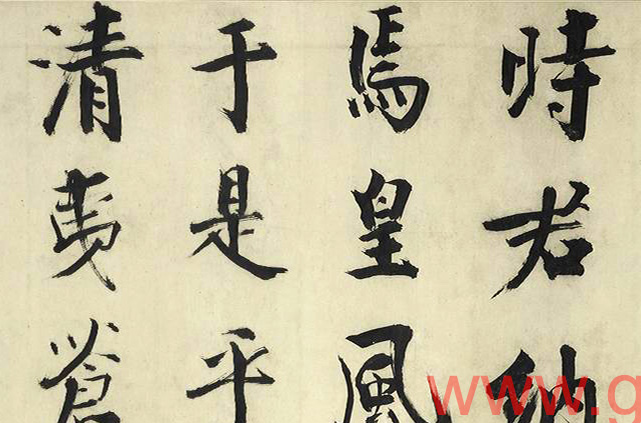 時若納
焉皇風
于是乎
清夷蒼
www.g